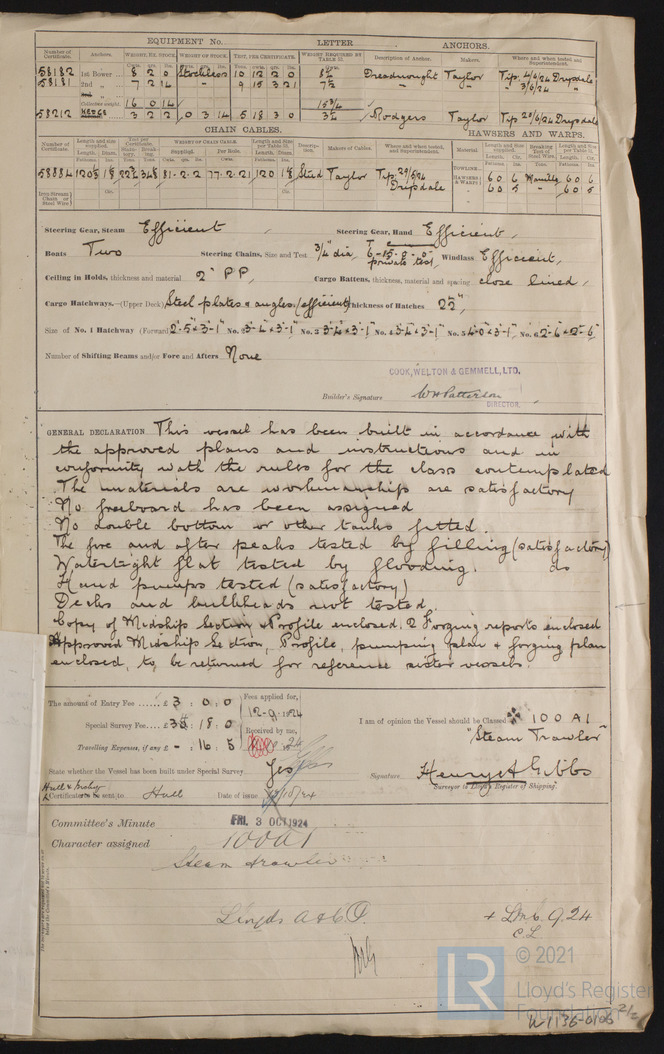 EQUIPMENT No. LETTER ANCHORS.
Number of Certificate. Anchors. WEIGHT, EX. STOCK. WEIGHT OF STOCK. TEST, PER CERTIFICATE. WEIGHT REQUIRED BY TABLE 31. Description of Anchor. Makers. Where and when tested and Superintendent.
58182 1st Bower 8 2 0 Stockless 10 12 2 0 8½ Dreadnought Taylor Tip. 4/6/24 Drysdale
58181 2nd „ 7 2 14 " 9 15 3 21 7½ " " " 3/6/24 "
Collective weight. 16 0 14 15¾
58212 KEDGE 3 2 2 0 3 14 5 18 3 0 3¾ Rodgers Taylor Tip 20/6/24 Drysdale
CHAIN CABLES. HAWSERS AND WARPS.
58884 Stud Taylor Tip 27/6/24 Drysdale
TOWLINE HAWSERS & WARPS 60 6 Manilla 60 6
60 5 " 60 5
Iron Stream Chain or Steel Wire
Steering Gear, Steam Efficient Steering Gear, Hand Efficient,
Boats Two Steering Chains, Size and Test ¾" dia, T 6-15-0-0 private test, Windlass Efficient,
Ceiling in Holds, thickness and material 2" P P, Cargo Battens, thickness, material and spacing close lined,
Cargo Hatchways.—(Upper Deck) Steel plates & angles (efficient) Thickness of Hatches 2½",
Size of No. 1 Hatchway (Forward) 2'-5" x 3'-1" No. 2 3'-4" x 3'-1" No. 3 3'-4" x 3'-1" No. 4 3'-4" x 3'-1" No. 5 4'-0" x 3'-1" No. 6 2'-6" x 2'-6"
Number of Shifting Beams and/or Fore and Afters None
COOK, WELTON & GEMMELL, LTD.
Builder's Signature WH Patterson
DIRECTOR.
GENERAL DECLARATION This vessel has been built in accordance with
the approved plans and instructions and in
conformity with the rules for the class contemplated
The materials are workmanship are satisfactory
No freeboard has been assigned
No double bottom or other tanks fitted.
The fore and after peaks tested by filling (satisfactory)
Watertight flat tested by flooding. do
Hand pumps tested (satisfactory)
Decks and bulkheads not tested.
Copy of Midship Section & Profile enclosed. 2 Forging reports enclosed
Approved Midship Section, Profile, pumping plan & forging plan
enclosed, to be returned for reference sister vessels.
The amount of Entry Fee £ 3 : 0 : 0 Fees applied for,
12-9-1924
Special Survey Fee £ 38 : 18 : 0 Received by me,
Travelling Expenses, if any £ - : 16 : 5
I am of opinion the Vessel should be Classed 100 A1
"Steam Trawler"
State whether the Vessel has been built under Special Survey Yes
Signature Henry A Gibbs
Surveyor to Lloyd's Register of Shipping.
Certificate to be sent to Hull Date of issue
Committee's Minute FRI. 3 OCT 1924
Character assigned 100A1
Steam trawler
Lloyds A & C P.
+ LMC 9.24
C.L
© 2021
LR Lloyd's Register
Foundation
W1136-0105 2/2